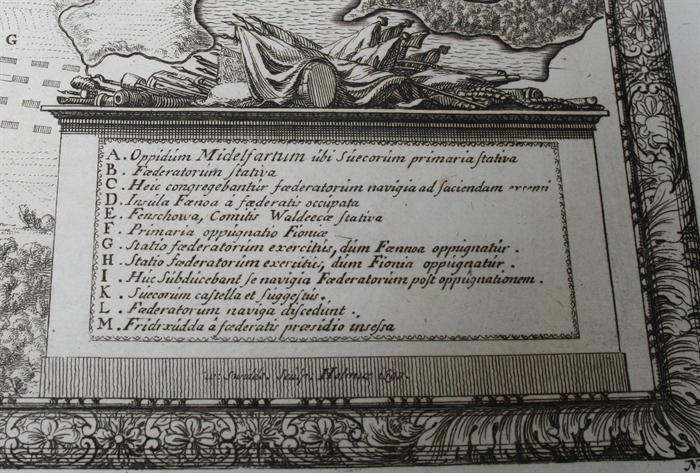 G
A. Oppidum Midelfartum ubi Suecorum primaria stativa
B. Fæderatorum stativa
C. Heic congregebantur fæderatorum navigia ad faciendam
D. Insula Fænoa à fæderatis occupata
E. Fenschowa, Comitis Waldeecæ stativa
F. Primaria oppugnatio Fioniæ
G. Statio fæderatorum exercitus, dum Fænnoa oppugnatur.
H. Statio fæderatorum exercitus, dum Fionia oppugnatur.
I. Huc Subducebant se navigia Fæderatorum post oppugnationem.
K. Suecorum castella et suggestus.
L. Fæderatorum naviga discedunt.
M. Fridrxudda à fæderatis præsidio insessa
Sculp. Holmiæ